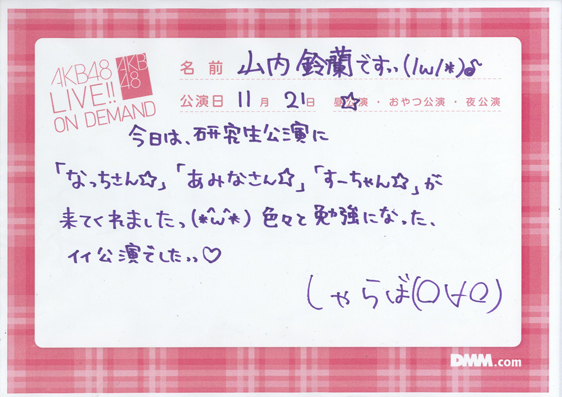 AKB48
LIVE!!
ON DEMAND
AKB
48
名前 山内鈴蘭ですっっ(/ω/*)♪
公演日 11月 21日 昼☆演・おやつ公演・夜公演
今日は、研究生公演に
「なっちさん☆」「あみなさん☆」「すーちゃん☆」が
来てくれましたっ(*^ω^*) 色々と勉強になった、
イイ公演でしたっっ♡
しゃらば(○∀○)
DMM.com